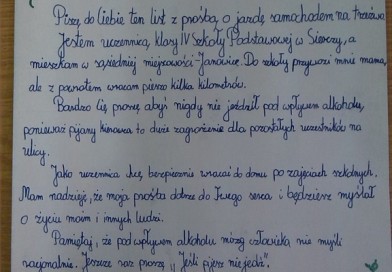 Piszę do Ciebie ten list z prośbą o jazdę samochodem na trzeźwo
Jestem uczennicą klasy IV Szkoły Podstawowej w Sierczy, a
mieszkam w sąsiedniej miejscowości - Janowice. Do szkoły przywozi mnie mama,
ale z powrotem wracam pieszo kilka kilometrów.
Bardzo Cię proszę abyś nigdy nie jeździł pod wpływem alkoholu,
ponieważ pijany kierowca to duże zagrożenie dla pozostałych uczestników na
ulicy.
Jako uczennica chcę bezpiecznie wracać do domu po zajęciach szkolnych.
Mam nadzieję, że moja prośba dotrze do Twego serca i będziesz myślał
o życiu moim i innych ludzi.
Pamiętaj, że pod wpływem alkoholu mózg człowieka nie myśli
racjonalnie. Jeszcze raz proszę „Jeśli pijesz nie jedź".